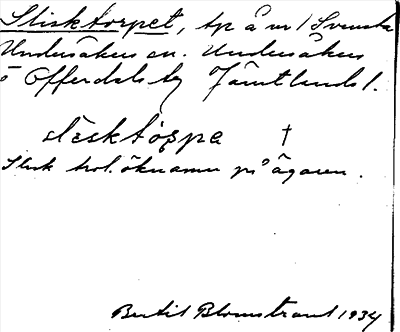 Slisktorpet, tp å nr 1 Svenska
Undersåkers sn. Undersåkers
o Offerdals tg Jämtlands l.
slìsktòrpa †
Slisk trol. öknamn på ägaren.
Bertil Blomstrand 1934